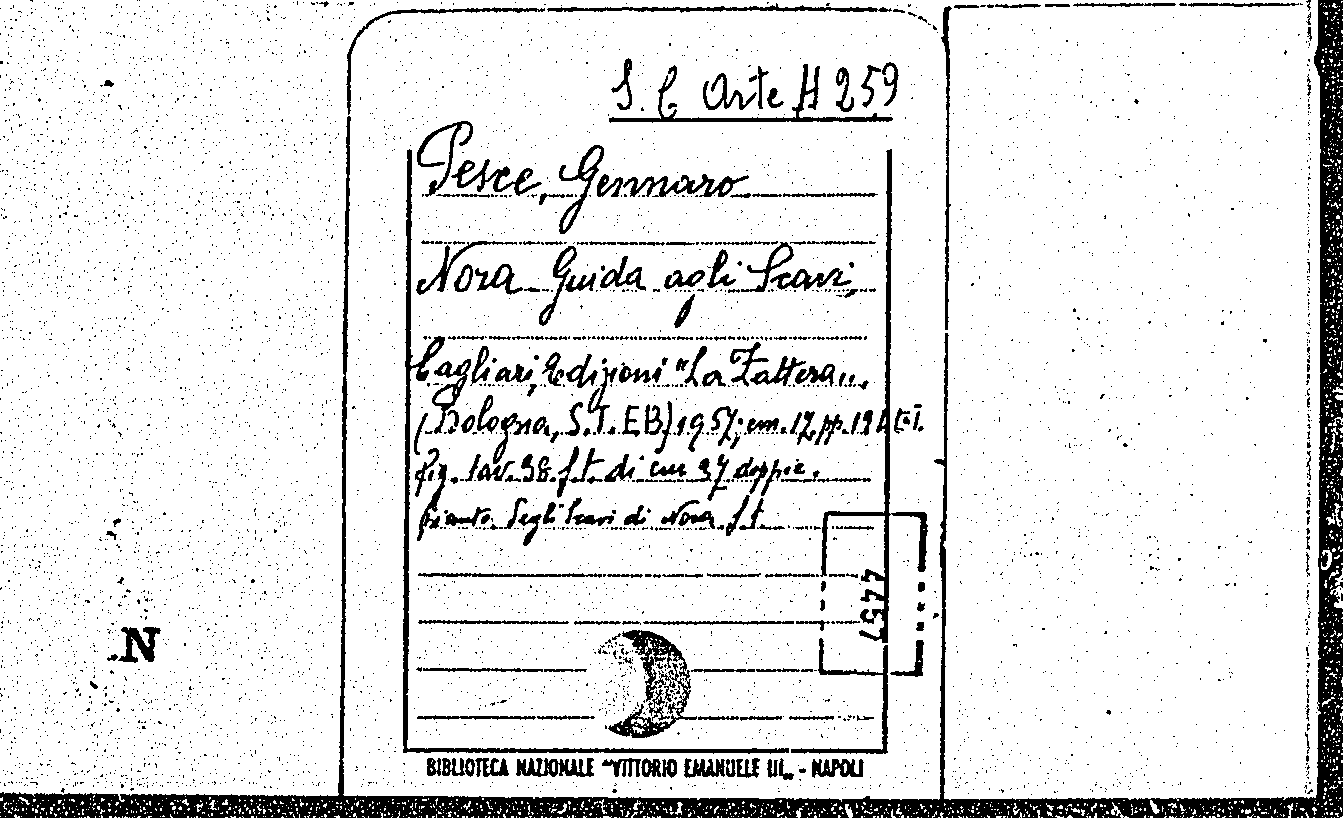 S. C. Arte H 259
Pesce, Gennaro
Nora Guida agli Scavi,
Cagliari, Edizioni "La Zattera„.
(Bologna, S.T.EB) 1957; cm. 17, pp. 194 t.i.
fig. tav. 38 f.t. di cui 37 doppie.
degli Scavi di Nora f.t.
4457
N
BIBLIOTECA NAZIONALE "VITTORIO EMANUELE III„ - NAPOLI